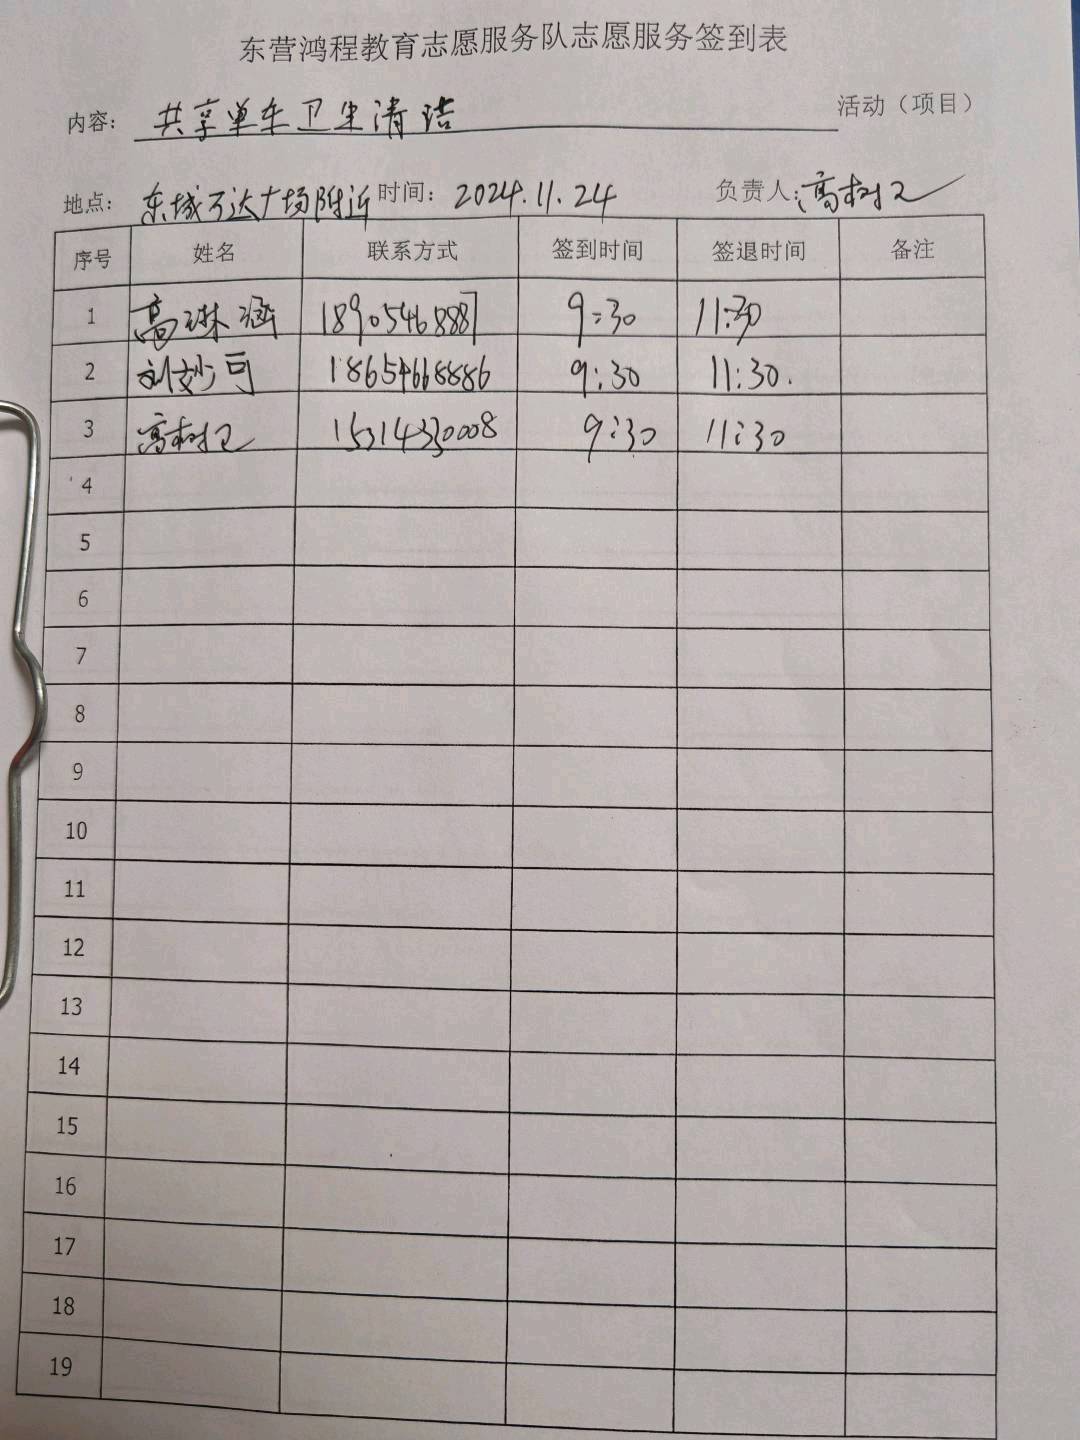 东营鸿程教育志愿服务队志愿服务签到表
内容: 共享单车卫生清洁 活动（项目）
地点: 东城万达广场附近 时间: 2024.11.24 负责人: 高树卫
序号 姓名 联系方式 签到时间 签退时间 备注
1 高琳涵 18905468887 9:30 11:30
2 刘妙可 18654668886 9:30 11:30.
3 高树卫 15314330008 9:30 11:30
4
5
6
7
8
9
10
11
12
13
14
15
16
17
18
19